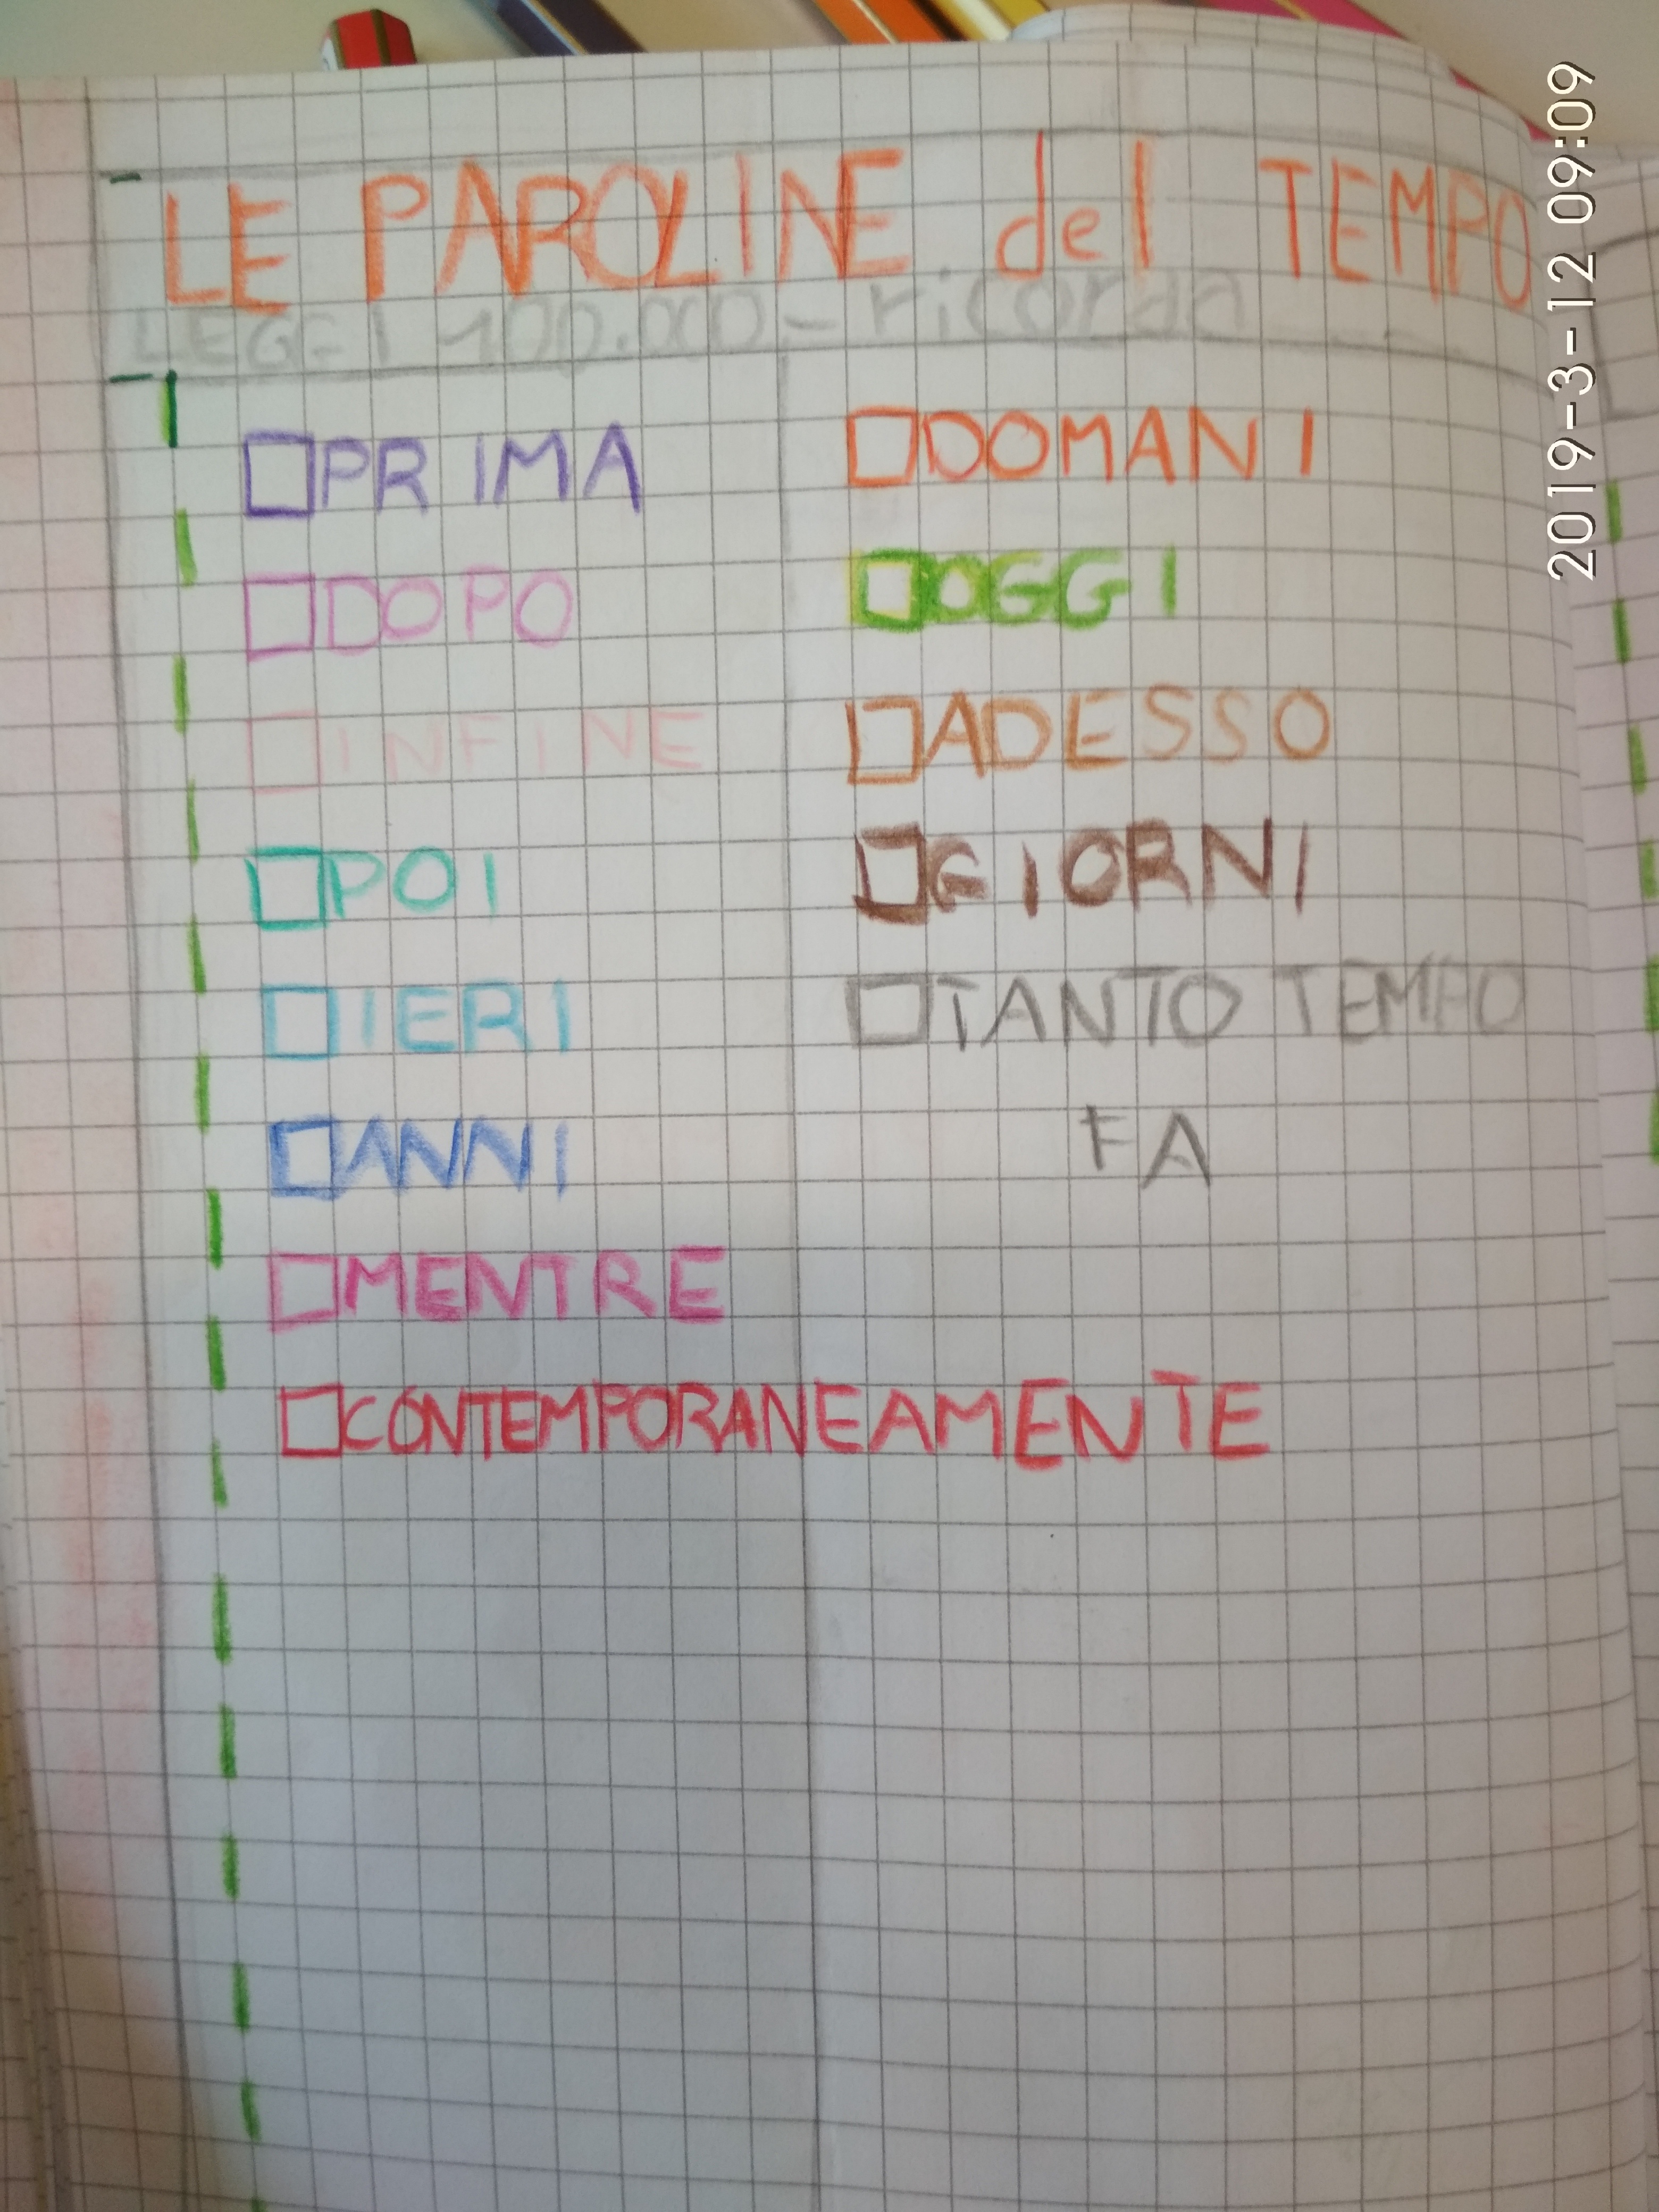 LE PAROLINE del TEMPO
LEGGI 100.000 - ricorda
PRIMA
DOPO
INFINE
POI
IERI
ANNI
MENTRE
CONTEMPORANEAMENTE
DOMANI
OGGI
ADESSO
GIORNI
TANTO TEMPO
FA
2019-3-12 09:09